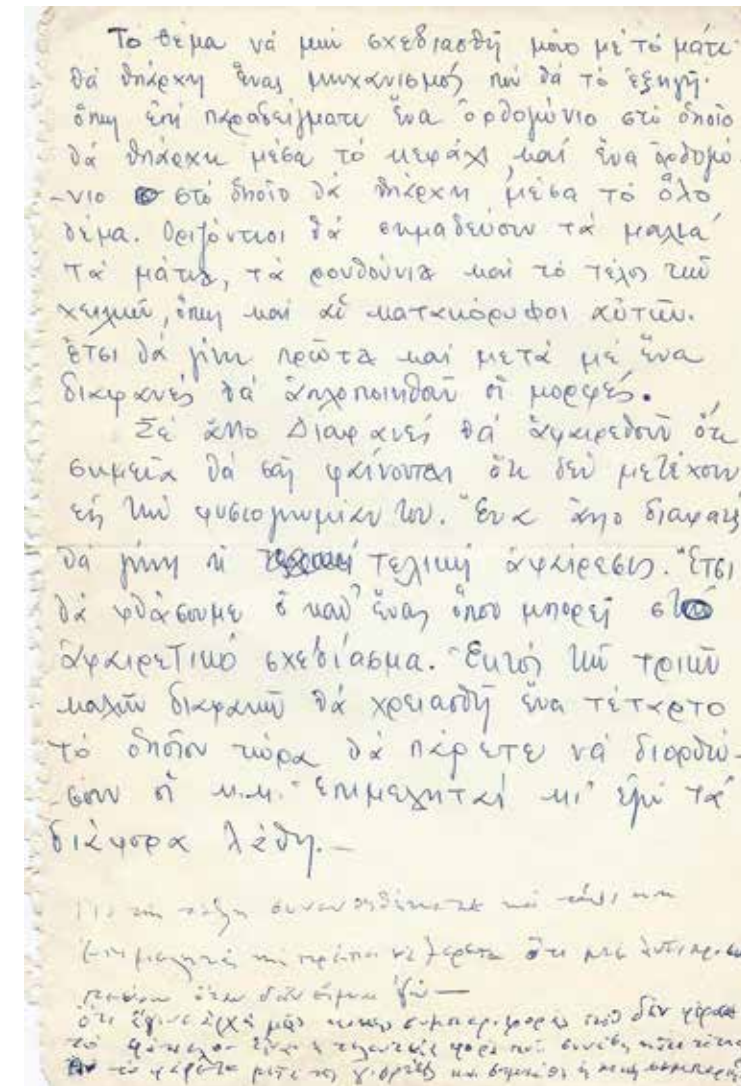 Τὸ θέμα νά μήν σχεδιασθῆ μόνο μέ τό μάτι·
θά ὑπάρχη ἕνας μηχανισμός πού θά τό ἐξηγῆ·
ὅπως ἐπί παραδείγματι ἕνα ὀρθογώνιο στό ὁποῖο
θά ὑπάρχη μέσα τό κεφάλι καί ἕνα ὀρθογώ-
-νιο στό ὁποῖο θά ὑπάρχη μέσα τό ὅλο
θέμα. Ὁριζόντιοι θά σημαδεύσουν τά μαλλιά
τά μάτια, τά ρουθούνια καί τό τέλος τῶν
χειλιῶν, ὅπως καί αἱ κατακόρυφοι αὐτῶν.
Ἔτσι θά γίνη πρῶτα καί μετά μέ ἕνα
διαφανές θά ἁπλοποιηθοῦν οἱ μορφές.
Σέ ἄλλο Διαφανές θά ἀφαιρεθοῦν ὅτι
σημεῖα θά σᾶς φαίνονται ὅτι δέν μετέχουν
εἰς τήν φυσιογνωμίαν του. Ἕνα ἄλλο διαφανές
θά γίνη ἡ τελική ἀφαίρεσις. Ἔτσι
θά φθάσουμε ὁ καθ' ἕνας ὅπου μπορεῖ στό
ἀφαιρετικό σχεδίασμα. Ἐκτός τῶν τριῶν
καλῶν διαφανῶν θά χρειασθῆ ἕνα τέταρτο
τό ὁποῖον τώρα θά πάρετε νά διορθώ-
-σουν οἱ κ.κ. Ἐπιμεληταί κι' ἐγώ τά
διάφορα λάθη.—
τάξη καί
νά ξέρετε ὅτι
ὅταν δέν εἶμαι ἐγώ —
ὅτι ἔγινε ἀρχή μιᾶς συμπεριφορᾶς πού δέν
τό εἶναι ἡ τελευταία φορά πού